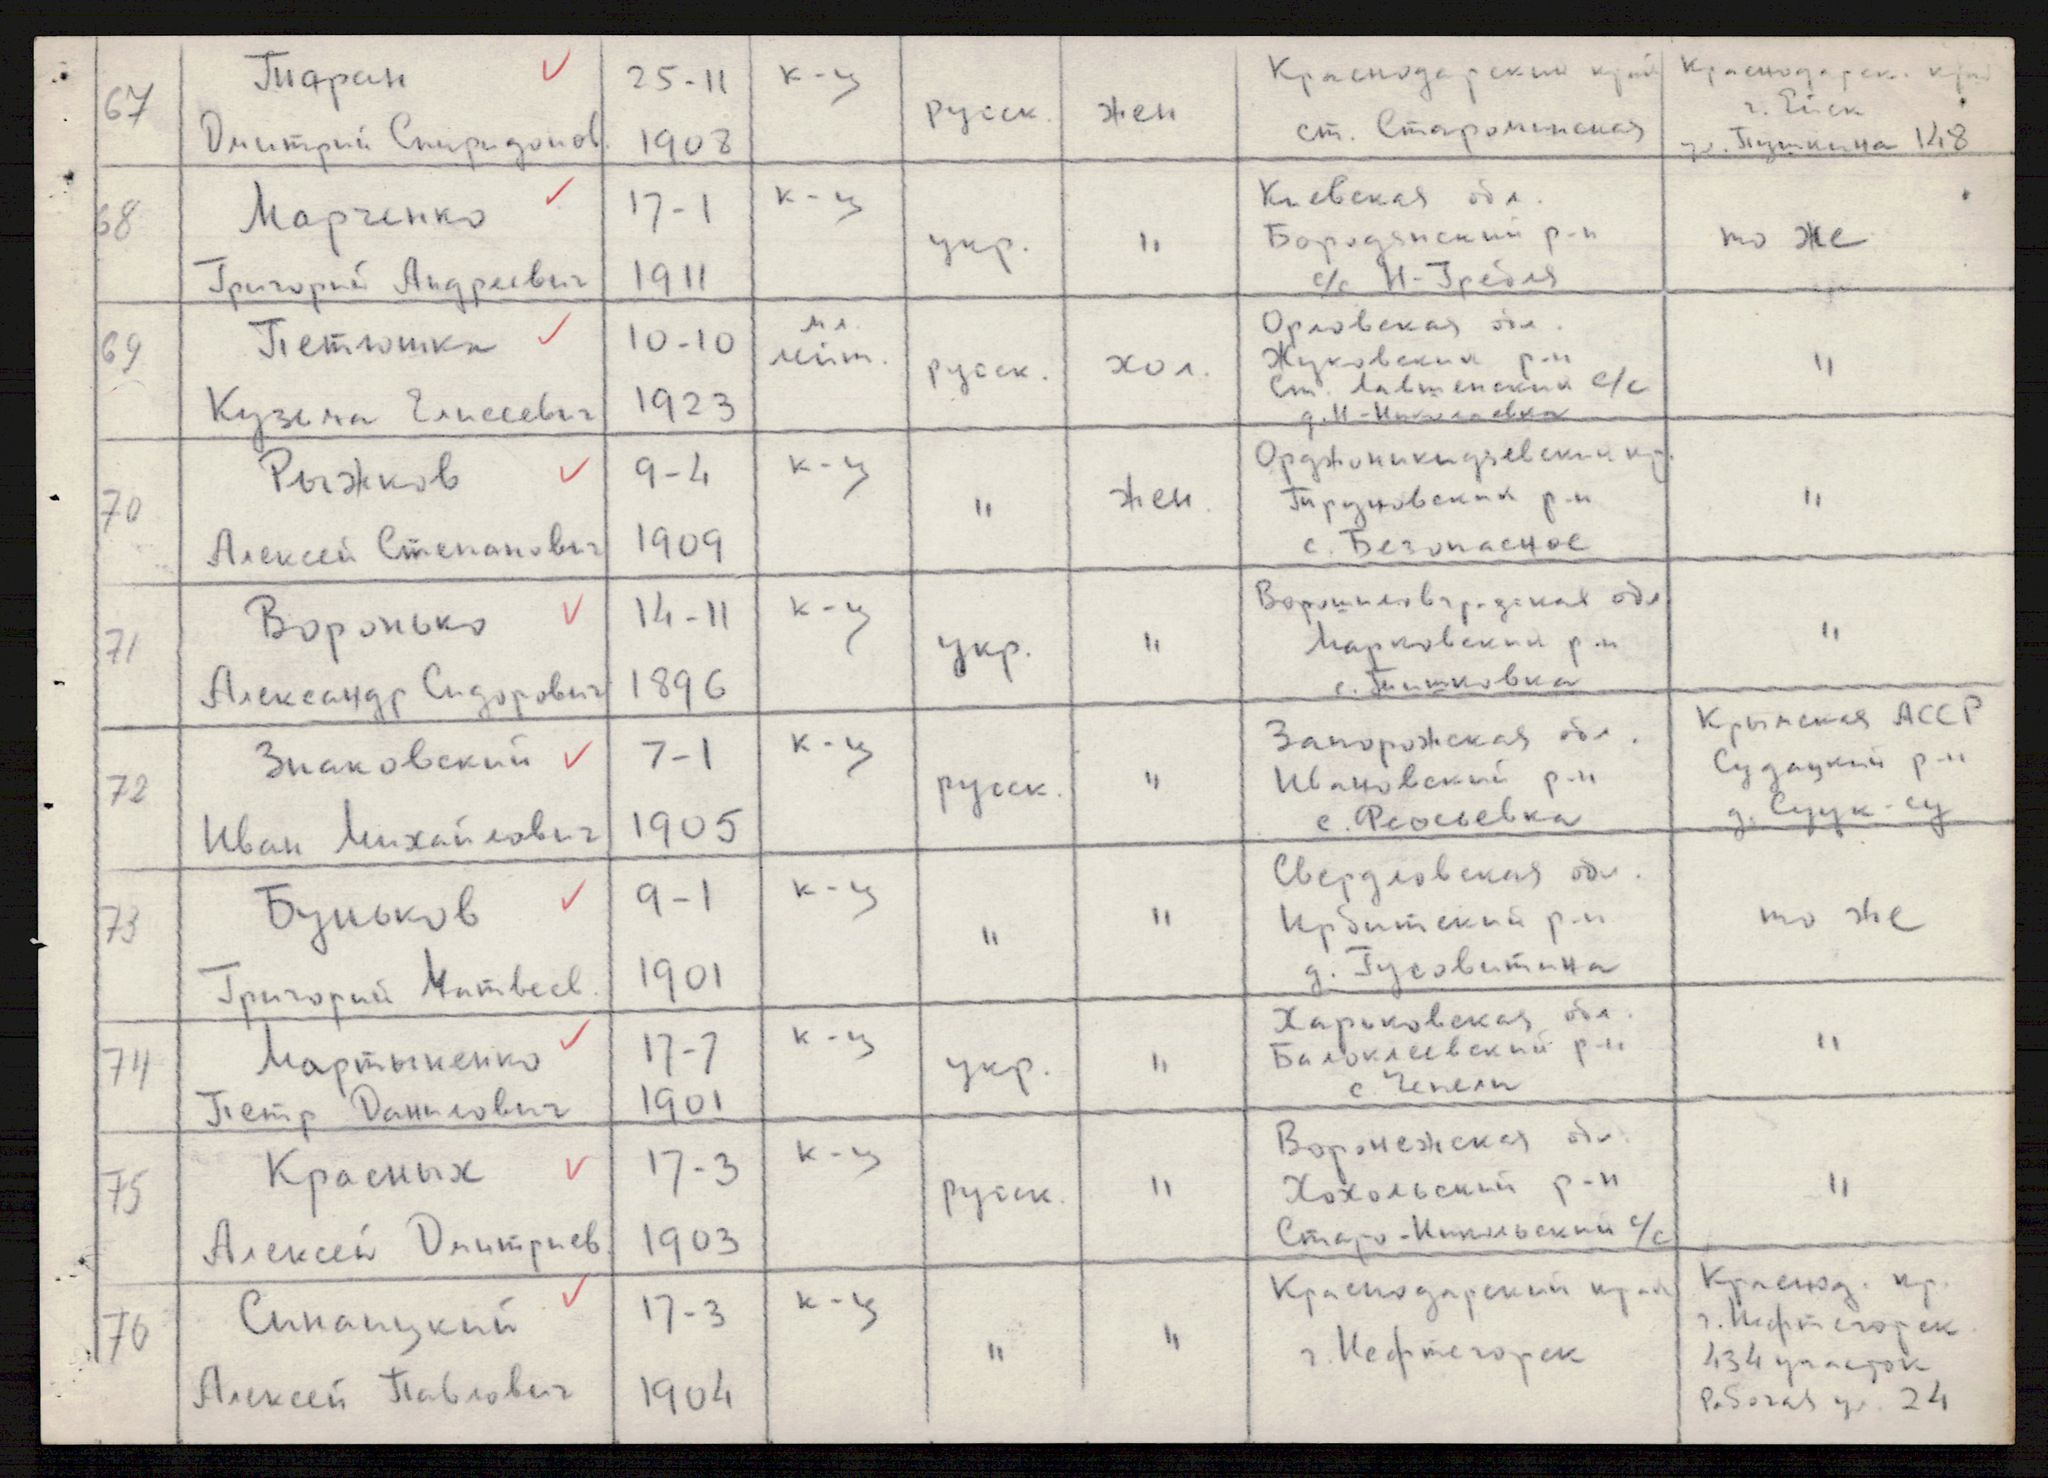 67
Таран
Дмитрий Спиридонов.
25-11
1908
к-ц
русск.
жен
Краснодарский край
ст. Староминская
Краснодарск. край
г. Ейск
ул. Пушкина 148
68
Марченко
Григорий Андреевич
17-1
1911
к-ц
укр.
"
Киевская обл.
Бородянский р-н
с/с Н-Гребля
то же
69
Петюшка
Кузьма Елисеевич
10-10
1923
мл.
лейт.
русск.
хол.
Орловская обл.
Жуковский р-н
с/с
д. Н-Николаевка
"
70
Рыжков
Алексей Степанович
9-4
1909
к-ц
"
жен.
Орджоникидзевский кр.
Труновский р-н
с. Безопасное
"
71
Воронько
Александр Сидорович
14-11
1896
к-ц
укр.
"
Ворошиловградская обл.
Марковский р-н
с. Тишковка
"
72
Знаковский
Иван Михайлович
7-1
1905
к-ц
русск.
"
Запорожская обл.
Ивановский р-н
с.
Крымская АССР
Судацкий р-н
д. Суук-су
73
Буньков
Григорий Матвеев.
9-1
1901
к-ц
"
"
Свердловская обл.
Ирбитский р-н
д. Гусовитина
то же
74
Мартыненко
Петр Данилович
17-7
1901
к-ц
укр.
"
Харьковская обл.
Балоклеевский р-н
с. Чепели
"
75
Красных
Алексей Дмитриев.
17-3
1903
к-ц
русск.
"
Воронежская обл.
Хохольский р-н
Старо-Никольский с/с
"
76
Синаицкий
Алексей Павлович
17-3
1904
к-ц
"
"
Краснодарский край
г. Нефтегорск
Краснод. кр.
г. Нефтегорск
434 участок
Рабочая ул. 24